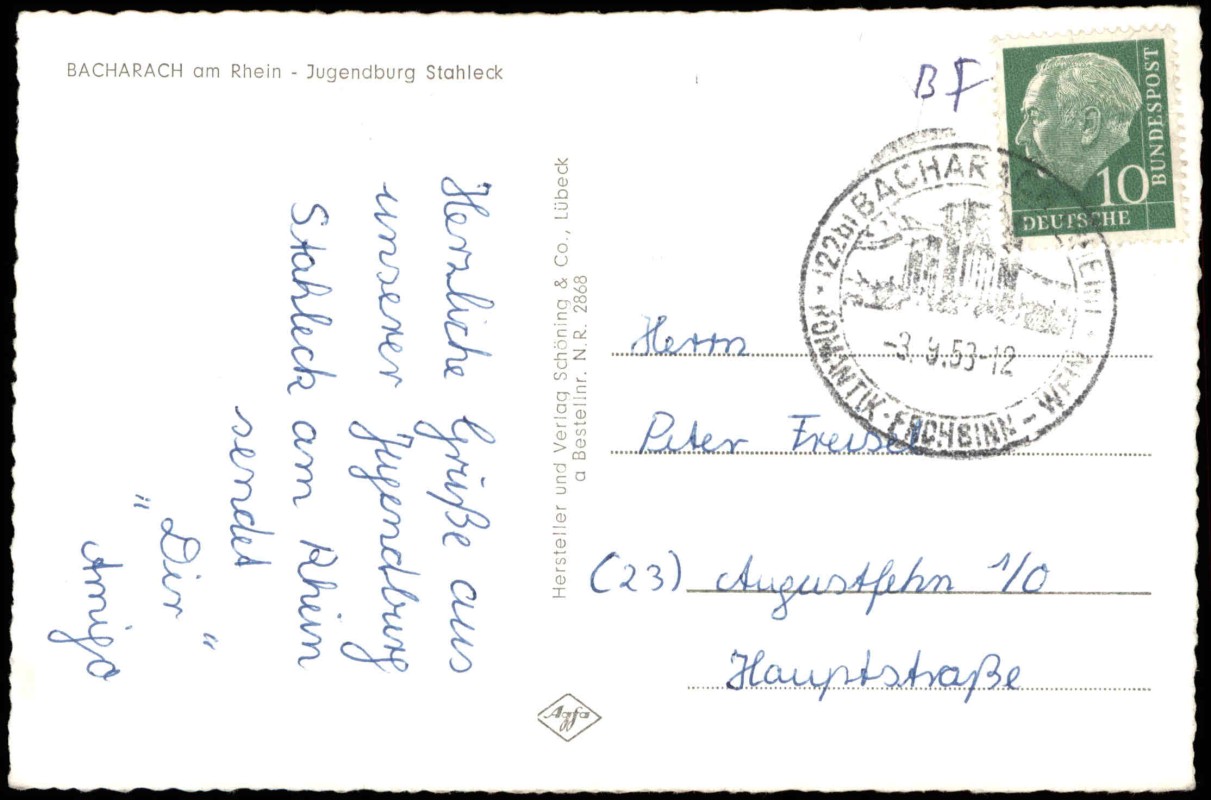 BACHARACH am Rhein - Jugendburg Stahleck
Herzliche Grüße aus
unserer Jugendburg
Stahleck am Rhein
sendet
"Dir"
Amigo
Hersteller und Verlag Schöning & Co., Lübeck
a Bestellnr. N.R. 2868
Agfa
BF
10
BUNDESPOST
DEUTSCHE
(22b) BACHARACH RHEIN
-3. 9.53-12
ROMANTIK - FROHSINN - WEIN
Herrn
Peter
(23) Augustfehn 1/O
Hauptstraße